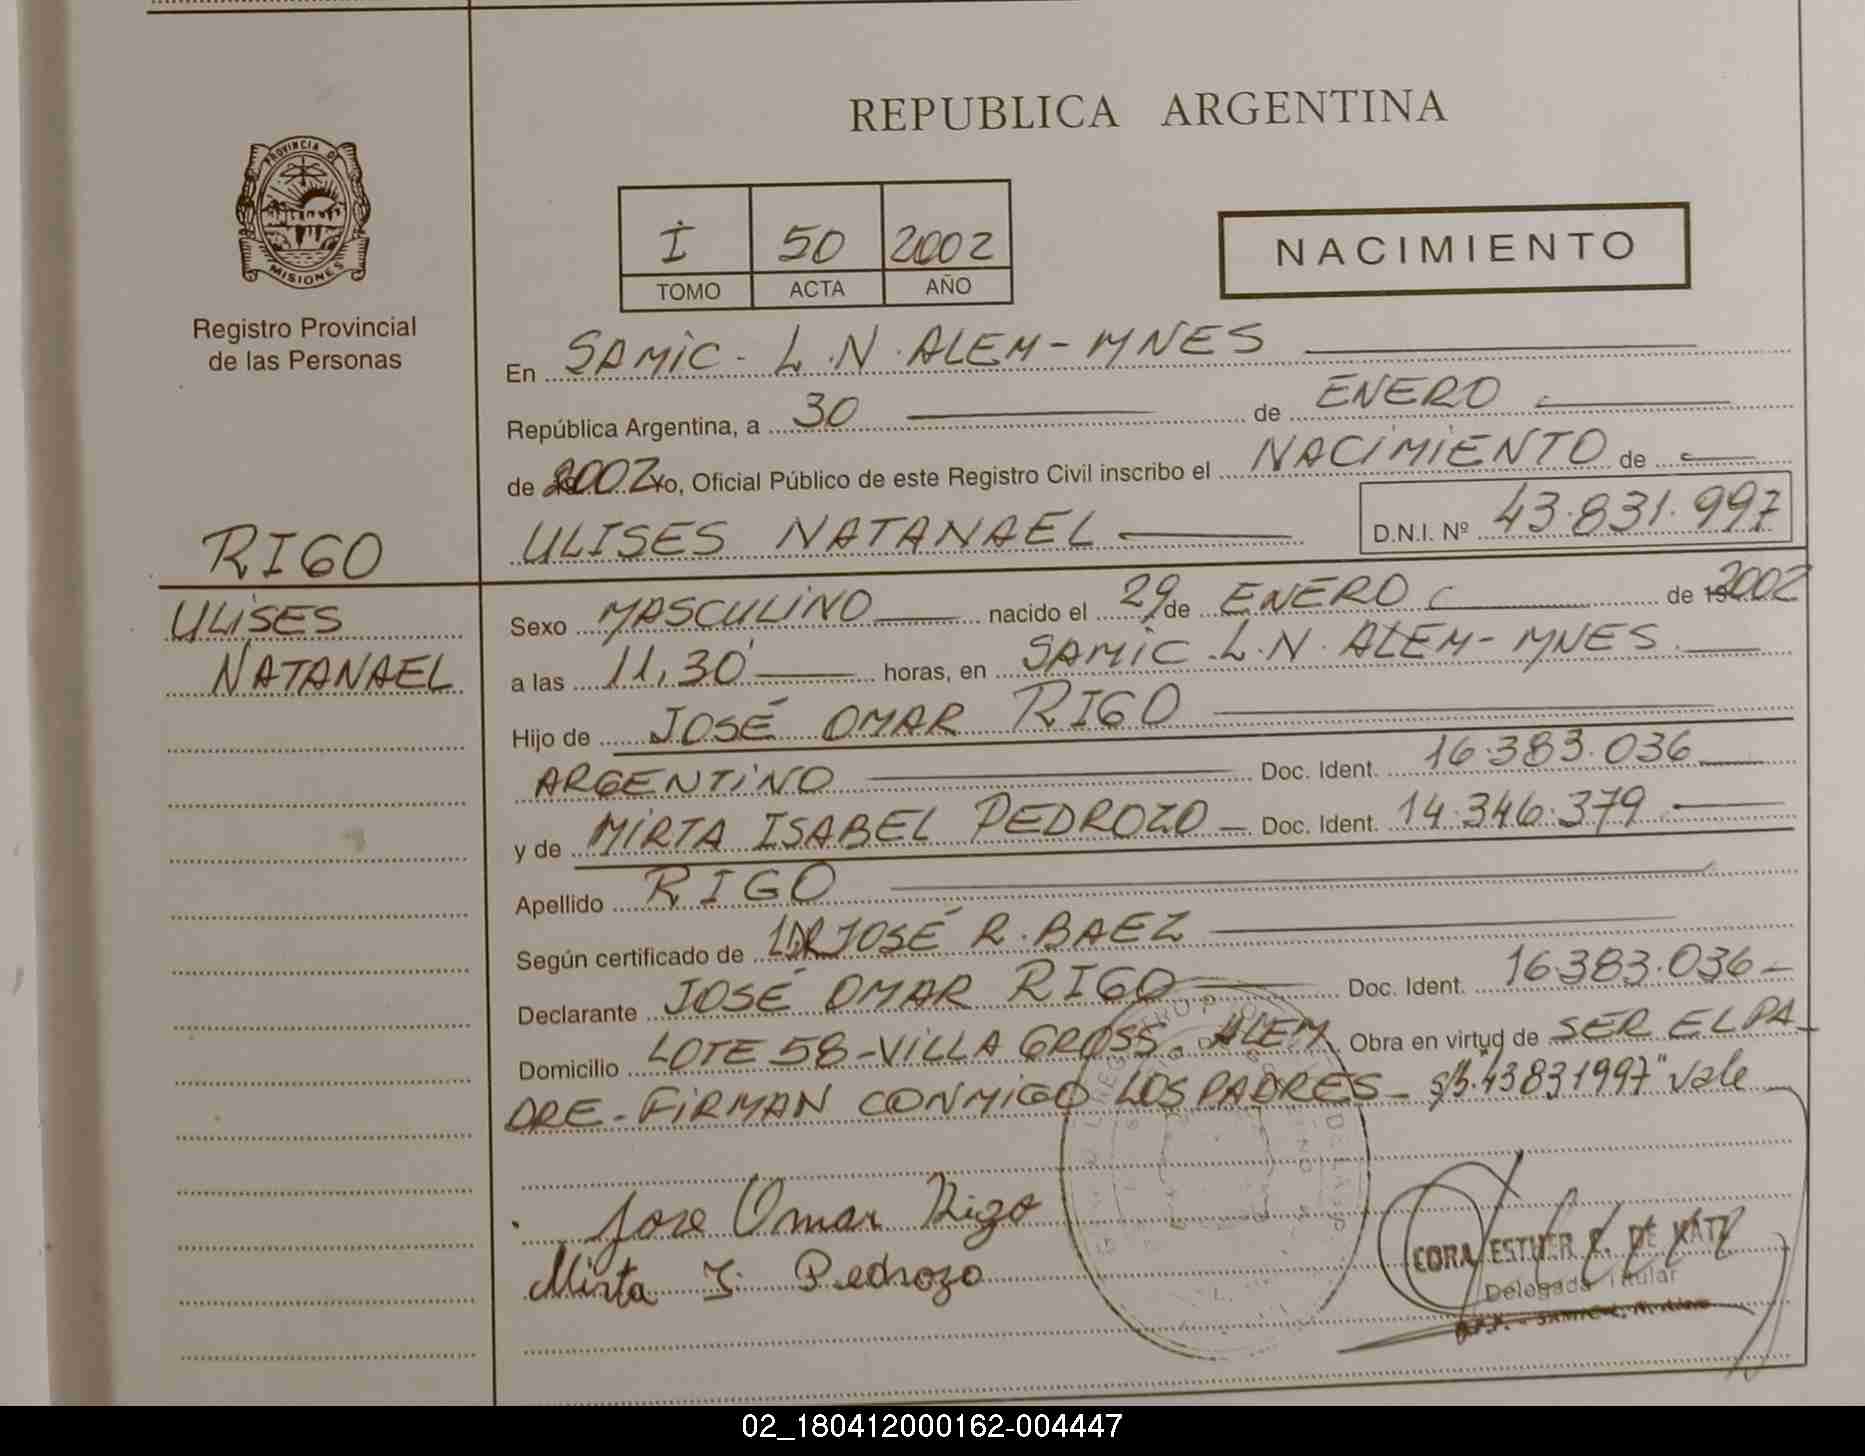 REPUBLICA ARGENTINA
PROVINCIA DE
MISIONES
Registro Provincial
de las Personas
I 50 2002
TOMO ACTA AÑO
NACIMIENTO
En SAMIC - L.N. ALEM - MNES
República Argentina, a 30 de ENERO
de 2002 Yo, Oficial Público de este Registro Civil inscribo el NACIMIENTO de
RIGO
ULISES NATANAEL D.N.I. Nº 43.831.997
ULISES
NATANAEL
Sexo MASCULINO nacido el 29 de ENERO de 2002
a las 11,30 horas, en SAMIC - L.N. ALEM - MNES
Hijo de JOSÉ OMAR RIGO
ARGENTINO Doc. Ident. 16.383.036
y de MIRTA ISABEL PEDROZO - Doc. Ident. 14.346.379
Apellido RIGO
Según certificado de DR JOSÉ R. BAEZ
Declarante JOSÉ OMAR RIGO Doc. Ident. 16.383.036 -
Domicilio LOTE 58 - VILLA GROSS. ALEM Obra en virtud de SER EL PA-
DRE - FIRMAN CONMIGO LOS PADRES - 43831997" Vale
Jose Omar Rigo
Mirta I. Pedrozo
CORA ESTHER DE
Delegada Titular
02_180412000162-004447